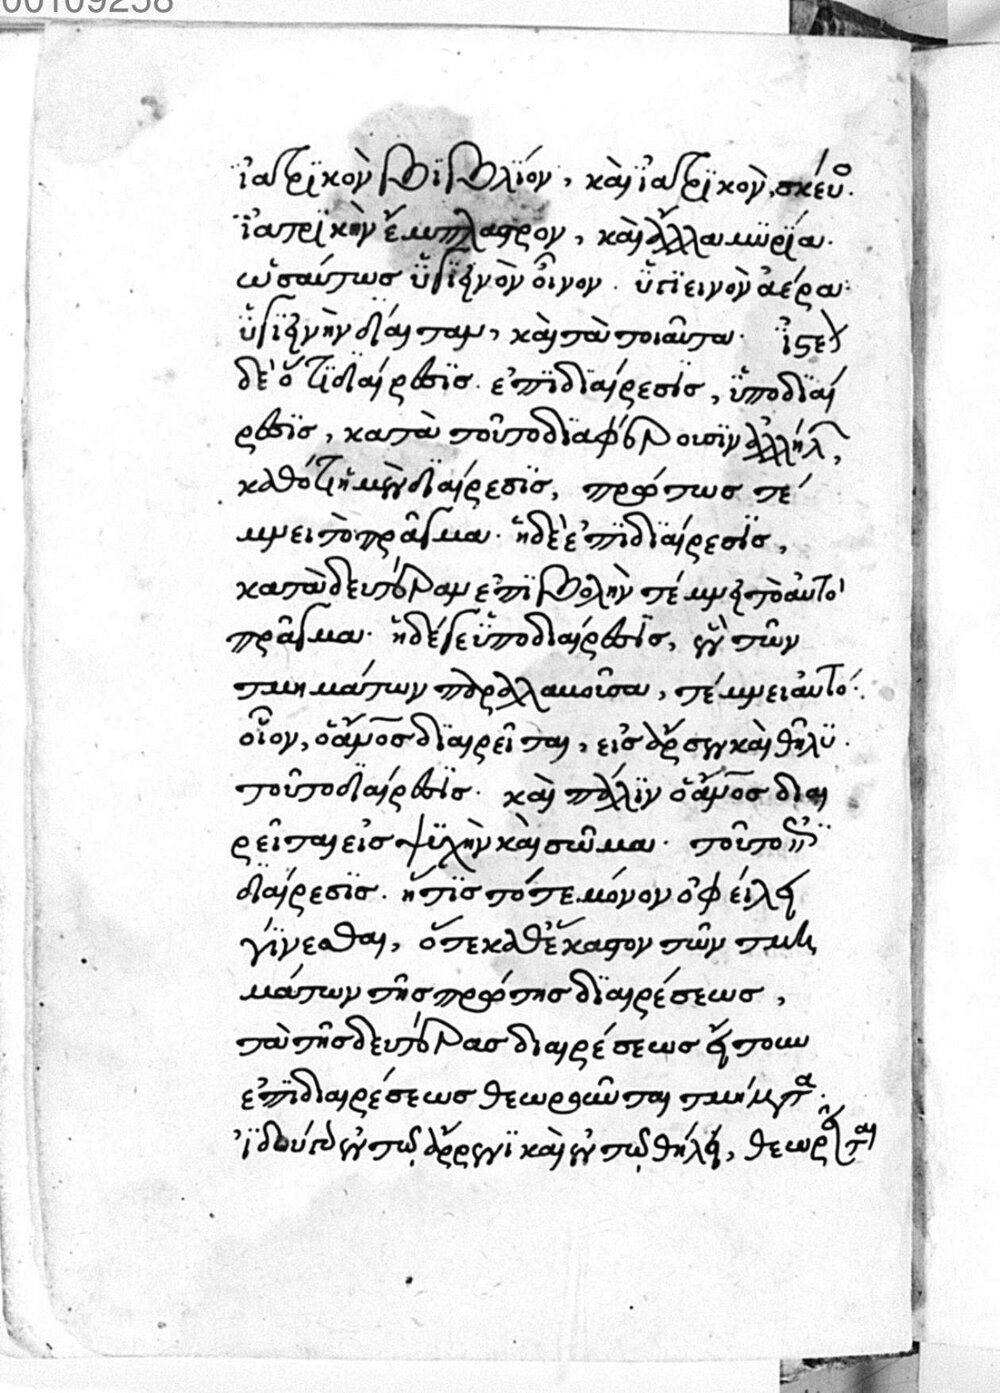 00109258
ἰατρικὸν βιβλίον, καὶ ἰατρικὸν, σκεῦο.
ἰατρικὴν ἔμπλαστρον, καὶ ἄλλα μυρία.
ὡσαύτως ὑγιεινὸν οἶνον. ὑγιεινὸν ἀέρα.
ὑγιεινὴν δίαιταν, καὶ τὰ τοιαῦτα. ἰστέον
δὲ ὅτι διαίρεσις. ἐπιδιαίρεσις, ὑποδιαί
ρεσις, κατὰ τοῦτο διαφέρουσιν ἀλλήλ,
καθότι ἡ μὲν διαίρεσις, πρώτως τέ
μνει τὸ πρᾶγμα. ἡ δὲ ἐπιδιαίρεσις,
κατὰ δευτέραν ἐπιβολὴν τέμνει τὸ αὐτὸ
πρᾶγμα. ἡ δέ γε ὑποδιαίρεσις, ἓν τῶν
τμημάτων παραλαμοῦσα, τέμνει αὐτό.
οἷον, ὁ ἄνος διαιρεῖται, εἰς ἄρσεν καὶ θῆλυ.
τοῦτο διαίρεσις. καὶ πάλιν ὁ ἄνος διαι
ρεῖται εἰς ψυχὴν καὶ σῶμα. τοῦτο ἐπι
διαίρεσις. ἥτις τότε μόνον ὀφείλει
γίνεσθαι, ὅτε καθέκαστον τῶν τμη
μάτων τῆς πρώτης διαιρέσεως,
τὰ τῆς δευτέρας διαιρέσεως ἤτοι
ἐπιδιαιρέσεως θεωροῦνται τμήματα.
ἰδοὺ γὰρ ἐν τῷ ἄρρενι καὶ ἐν τῷ θήλει, θεωρεῖται